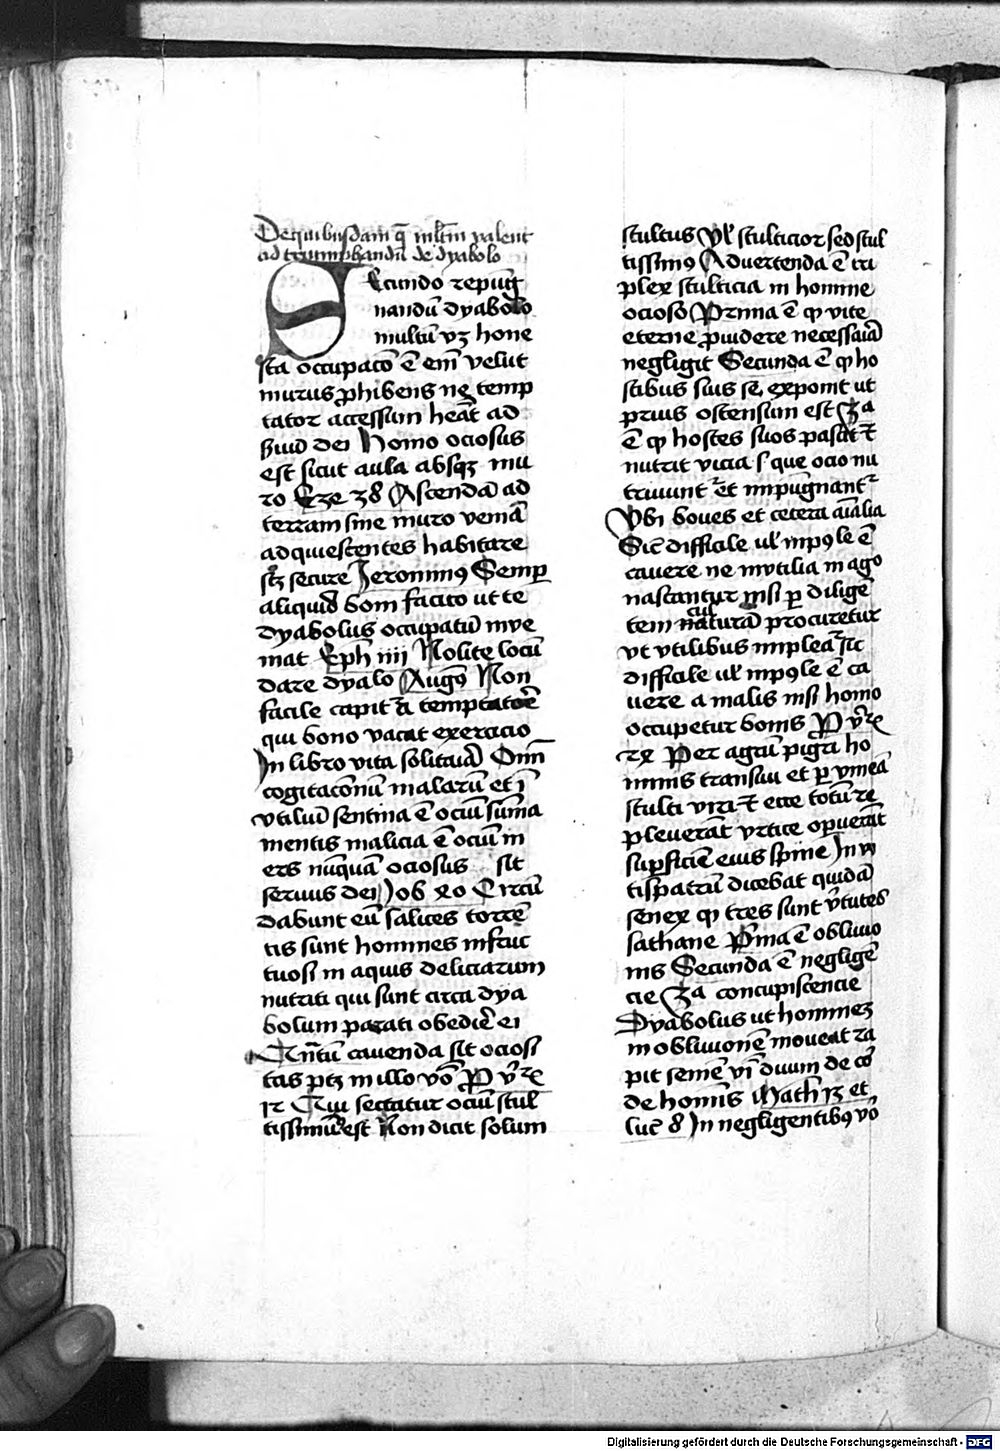 De quibusdam q̄ mltm̄ valent
ad triumphandū de dyabolo
Secundo repūg
nandū dyabolo
multū vꝫ hone
sta occupac̄o ē em̄ velut
murus ꝓhibens ne temp
tator accessum heāt ad
ẜuū dei Homo ociosus
est sicut aula absqꝫ mu
ro Eze 38 Ascendā ad
terram sine muro veniā
ad quiescentes habitare
sqꝫ secure Jeronimꝯ Semꝑ
aliquid boni facito ut te
dyabolus occupatū inve
niat Eph iiii Nolite locū
dare dyalo Augꝰ Non
facile capit̄ a temptatoē
qui bono vacat exercicio
In libro vita solitaā Oīm
cogitac̄onū malarū et ī
vtiliū sentina ē ociū sūma
mentis malicia ē ociū in
ers nūquā ociosus sit
seruus dei Job xo Circū
dabunt eū salices torrē
tis sunt homines infruc
tuosi in aquis deliciarum
nutriti qui sunt circa dya
bolum parati obediē ei
Tn̄tū cavenda sit ociosi
tas ptꝫ in illo vō Pv̄ꝛx
12 Qui sectatur ociū stul
tissimꝰ est Non dicit solum
stultus Vl̄ stulticior sed stul
tissimꝯ Advertenda ē tri
plex stulticia in homine
ocioso Prima ē ꝙ vite
eterne ꝓuidere necessaia
negligit Secunda ē ꝙ ho
stibus suis se exponit ut
prius ostensum est 3a
ē ꝙ hostes suos pascit ⁊
nutrit vicia s. que ocio nu
triuunt᷑ et impūgnant᷑
Vbi boues et cetera aīalia
Sic̄ difficile ul̄ impꝯle ē
cauere ne invtilia in agō
nascantur nisi ꝑ diligē
tem cul
naturā procuretur
vt vtilibus impleat᷑ sic
difficile ul̄ impꝯle ē ca
uere a malis nisi homo
occupetur bonis P v̄ꝛx
xx Per agrū pigri ho
minis transiui et ꝑ vineā
stulti viri ⁊ ecce totū re
pleuerāt vrtice oꝑuerāt
suꝑficiē eius spine In vi
tis patrū dicebat quidā
senex ꝙ tres sunt v̄tutes
sathane P̄ma ē obliuio
nis Secunda ē negligē
cie 3a concupiscencie
Dyabolus ut hominez
in obliuionē moueat ra
pit semē v̄i diuini de cō
de hominis Math 13 et
luc̄ 8 In negligentibꝯ vō
Digitalisierung gefördert durch die Deutsche Forschungsgemeinschaft - DFG